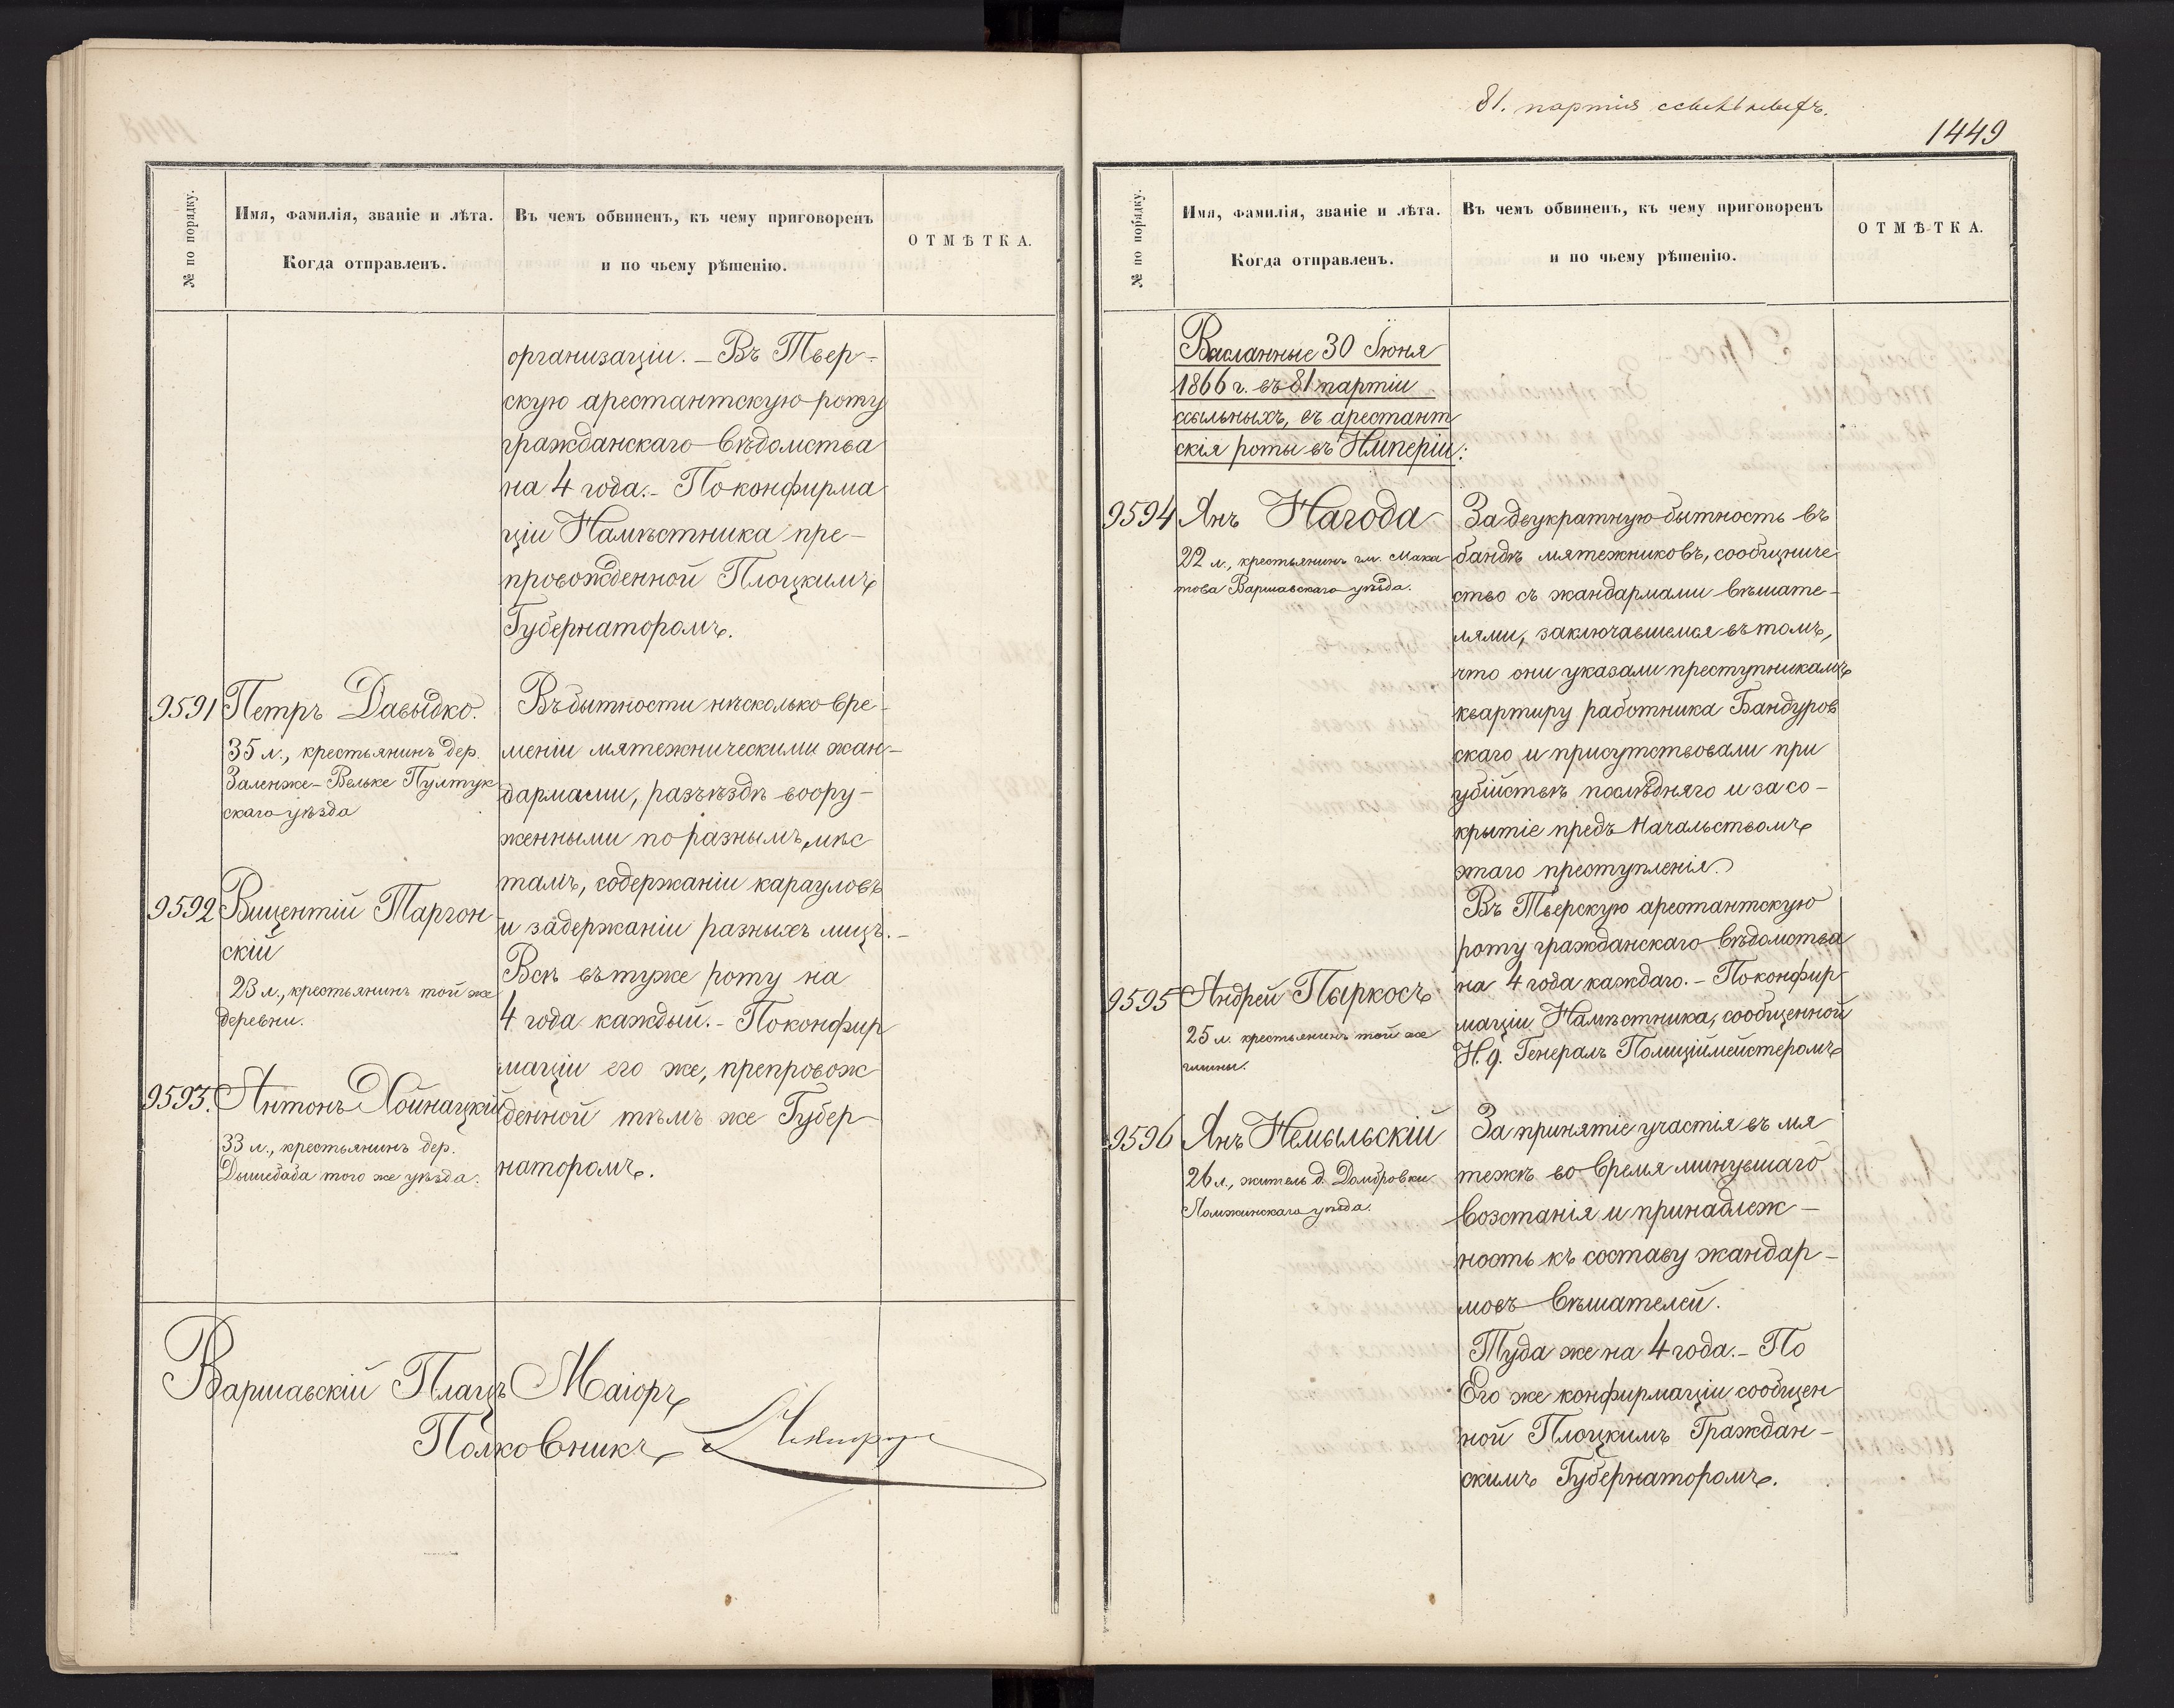 № по порядку.
Имя, фамилія, званіе и лѣта.
Когда отправленъ.
Въ чемъ обвиненъ, къ чему приговоренъ
и по чьему рѣшенію.
ОТМѢТКА.
организаціи. – Въ Твер-
скую арестантскую роту
гражданскаго вѣдомства
на 4 года. – По конфирма
ціи Намѣстника пре-
провожденной Плоцкимъ
Губернаторомъ.
9591 Петръ Давыдко.
35 л., крестьянинъ дер.
Заленже-Вельке Пултук
скаго уѣзда
9592 Вицентій Таргон
скій
23 л., крестьянинъ той же
деревни.
9593. Антонъ Хойнацкій
33 л., крестьянинъ дер.
Дышебаба того же уѣзда.
Въ бытности нѣсколько вре-
меніи мятежническими жан-
дармами, разъѣздѣ воору-
женными по разнымъ мѣс
тамъ, содержаніи карауловъ
и задержаніи разныхъ лицъ. –
Всѣ въ туже роту на
4 года каждый. – По конфир
маціи его же, препровож
денной тѣмъ же Губер-
наторомъ.
Варшавскій Плацъ Маіоръ
Полковникъ
81. партія
1449
№ по порядку.
Имя, фамилія, званіе и лѣта.
Когда отправленъ.
Въ чемъ обвиненъ, къ чему приговоренъ
и по чьему рѣшенію.
ОТМѢТКА.
Высланные 30 Іюня
1866 г. въ 81 партіи
ссыльныхъ, въ арестант
скія роты въ Имперіи:
9594 Янъ Нагода
22 л., крестьянинъ гм. Мака
това Варшавскаго уѣзда.
За двукратную бытность въ
бандѣ мятежниковъ, сообщниче
ство съ жандармами вѣшате-
лями, заключавшемся въ томъ,
что они указали преступникамъ
квартиру работника Бандуров
скаго и присутствовали при
убійствѣ послѣдняго и за со-
крытіе предъ Начальствомъ
этаго преступленія.
Въ Тверскую арестантскую
роту гражданскаго вѣдомства
на 4 года каждаго. – По конфир
маціи Намѣстника, сообщенной
И. д. Генералъ Полиціймейстеромъ
9595 Андрей Пыркосъ
25 л. крестьянинъ той же
гмины.
9596 Янъ Немыльскій
26 л., житель д. Домбровки
Ломжинскаго уѣзда.
За принятіе участія въ мя
тежѣ во время минувшаго
возстанія и принадлеж-
ность къ составу жандар-
мовъ вѣшателей.
Туда же на 4 года. – По
Его же конфирмаціи сообщен
ной Плоцкимъ Граждан-
скимъ Губернаторомъ.